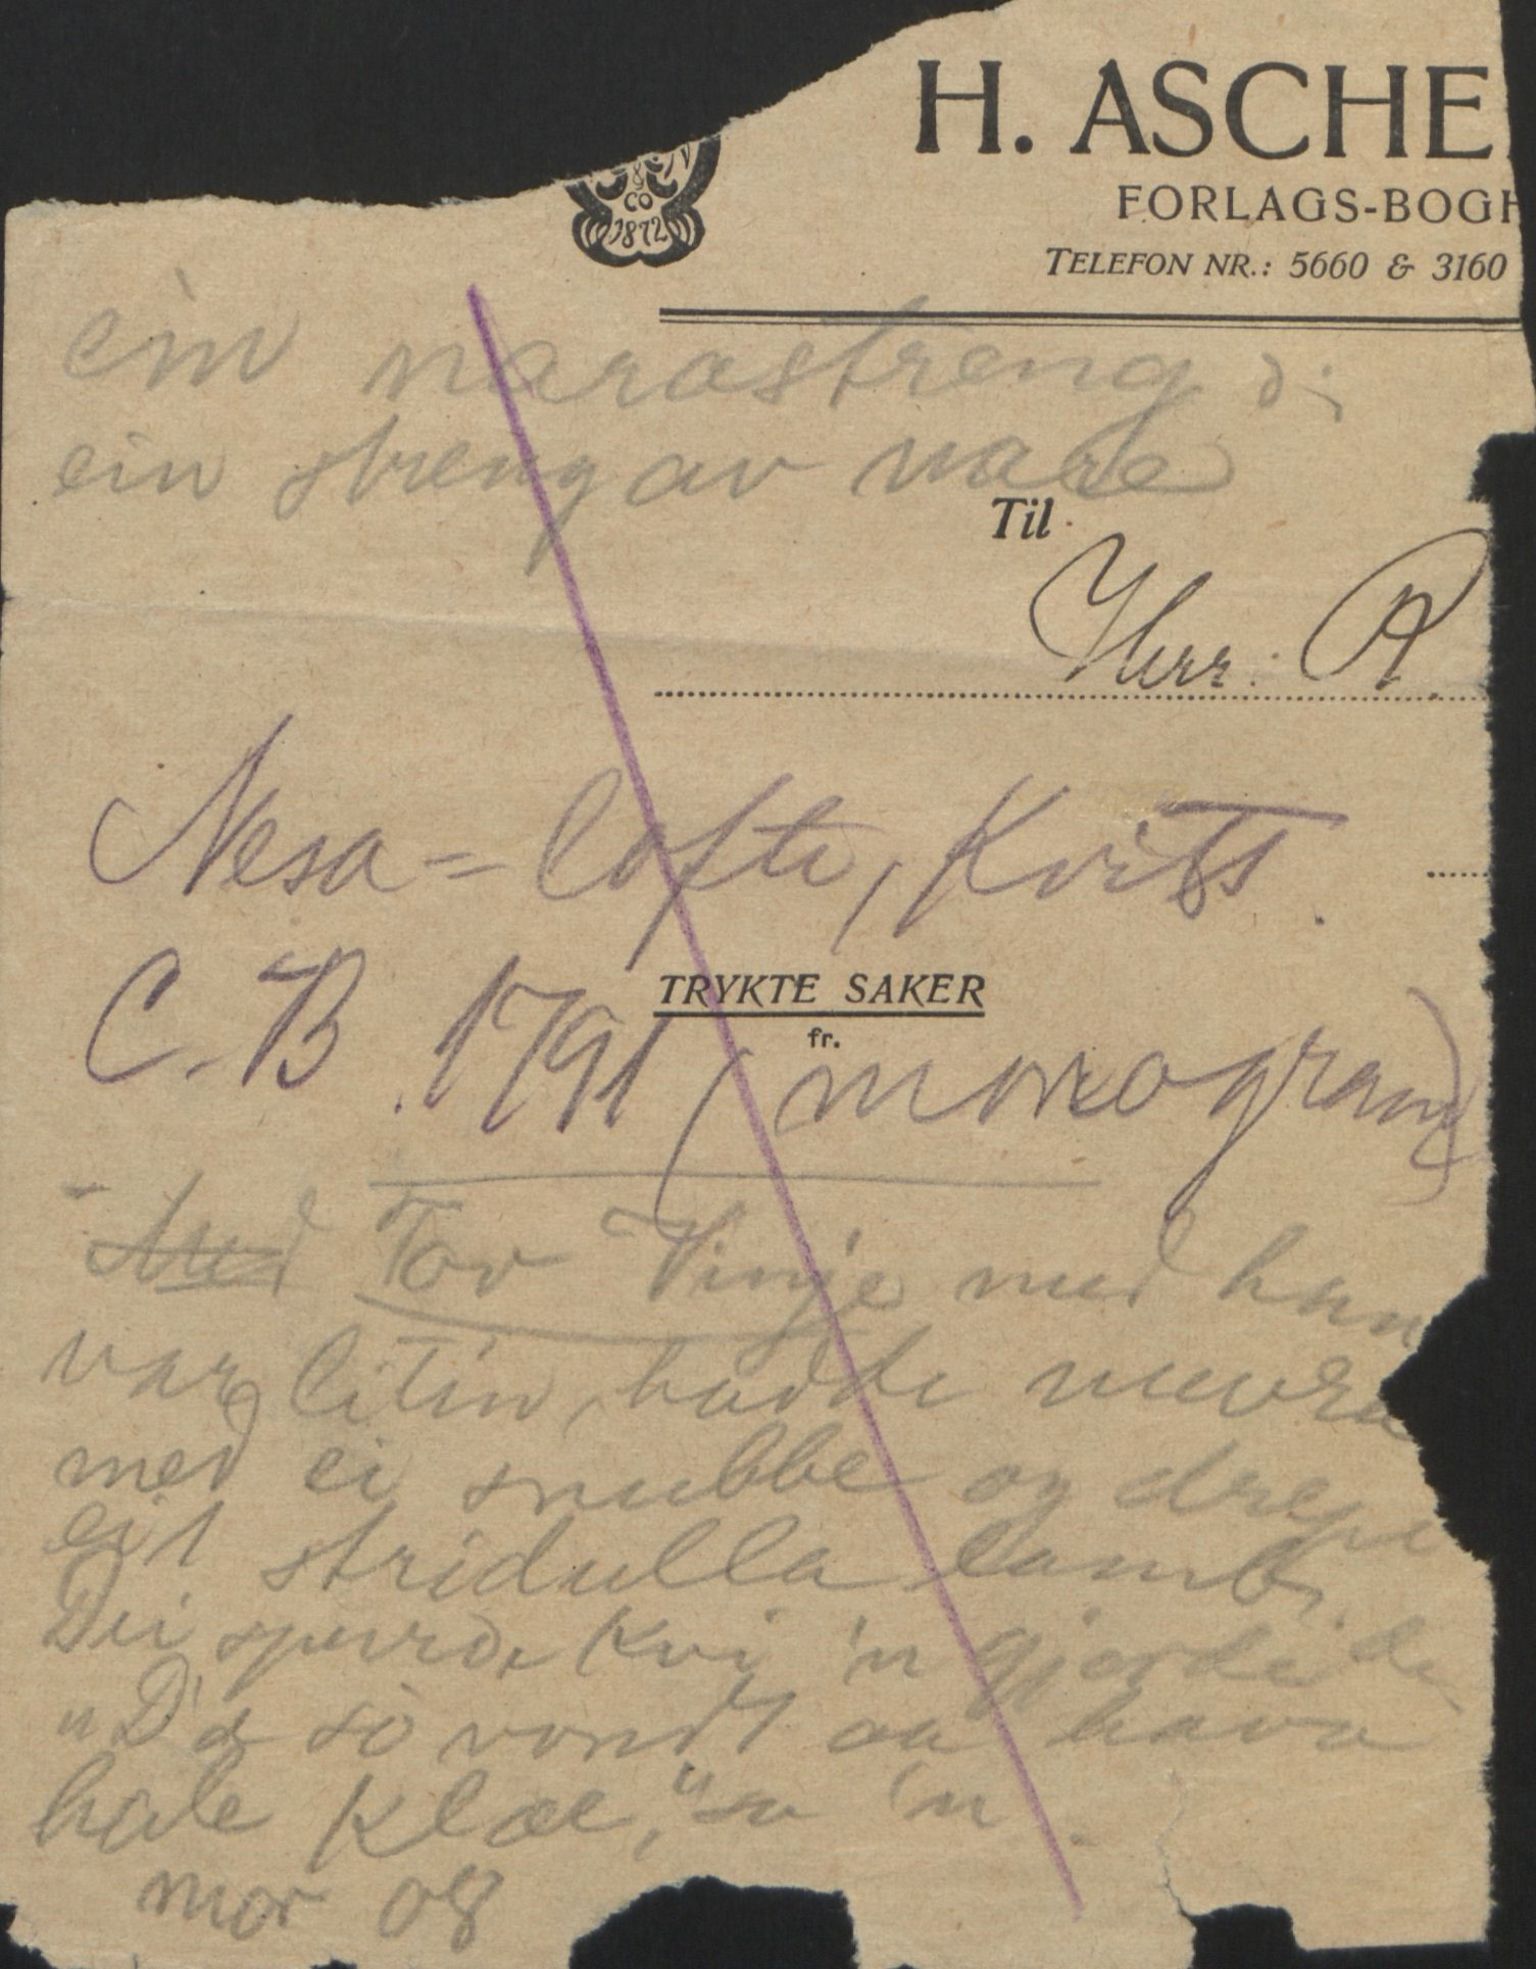 & CO
1872
H. ASCHE
FORLAGS-BOGH
TELEFON NR.: 5660 & 3160
ein narastreng ɔ:
ein streng av nare
Til
Herr. R.
Nesa = lofte, Kvits.
C. B. 1791 (monogram)
TRYKTE SAKER
fr.
Tov Vinje med han
var litin, hadde
med ei snubbe og drepi
eit stridulla lamb.
Dei spurde kvi 'n gjorde de
"D'æ so vondt aa hava
hale klæe," sa 'n.
mor 08